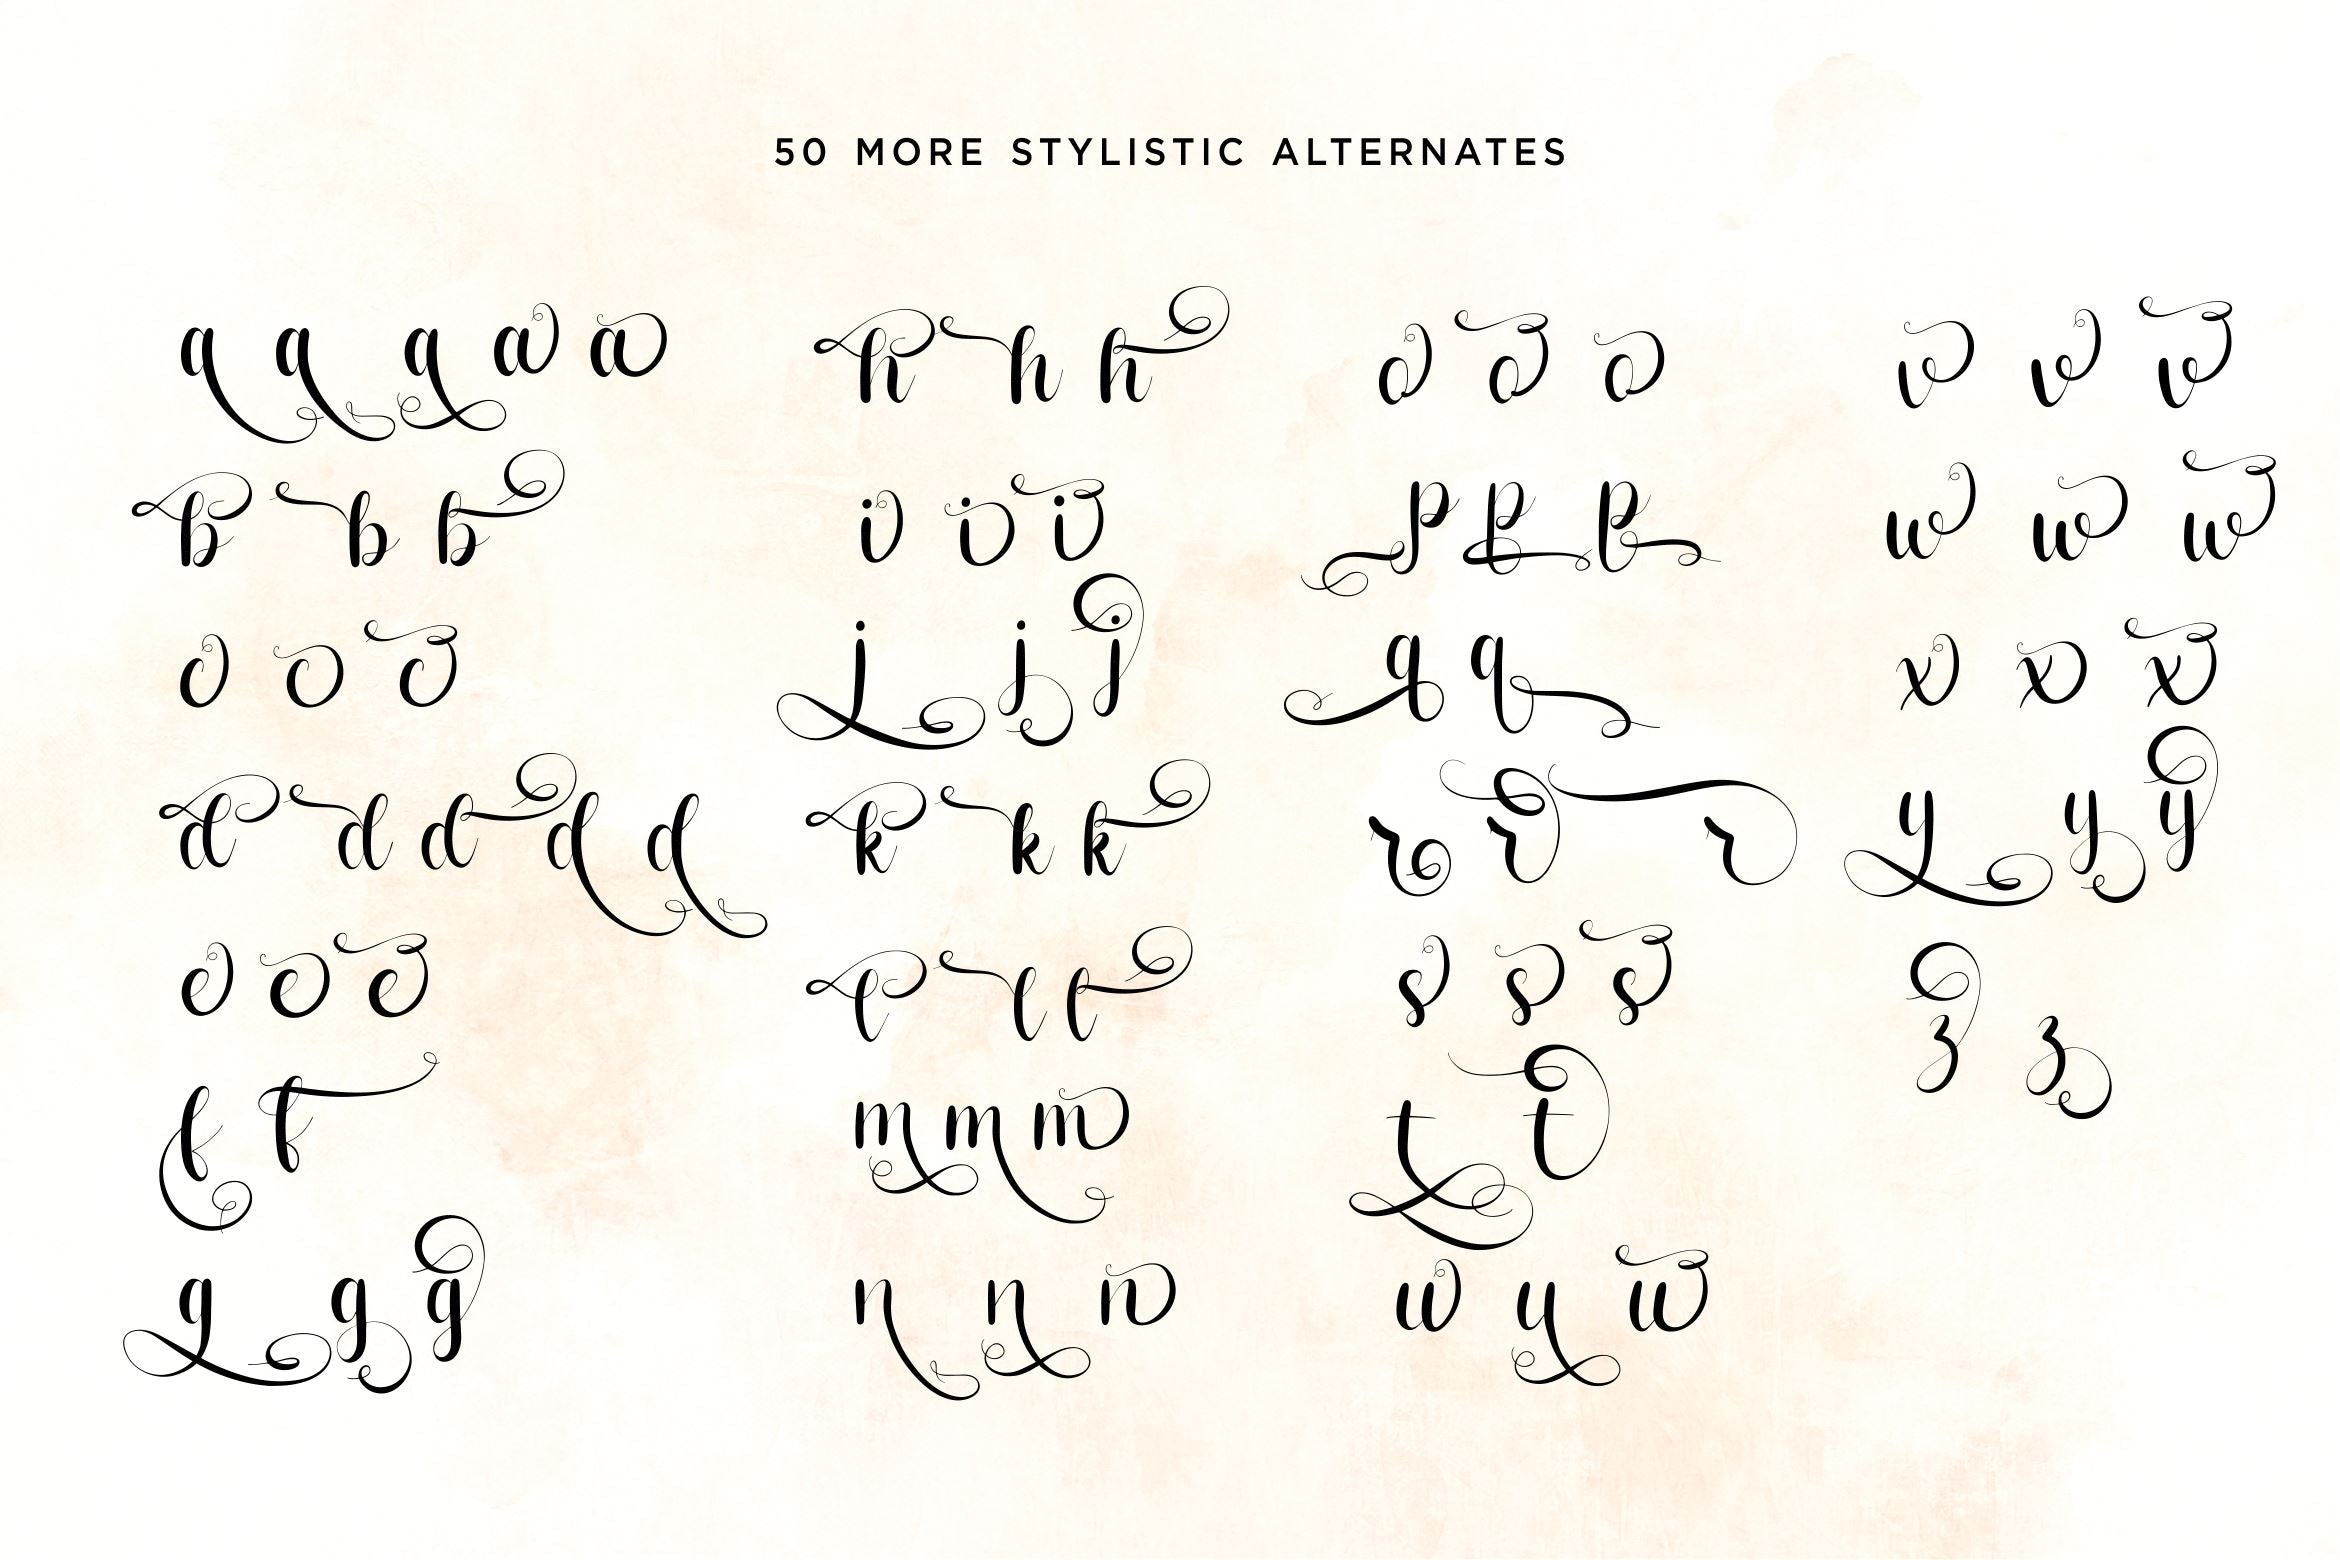 50 MORE STYLISTIC ALTERNATES
a a a a a
b b b
c c c
d d d d d
e e e
f f
g g g
h h h
i i i
j j j
k k k
l l l
m m m
n n n
o o o
p p p
q q
r r r
s s s
t t
u u u
v v v
w w w
x x x
y y y
z z